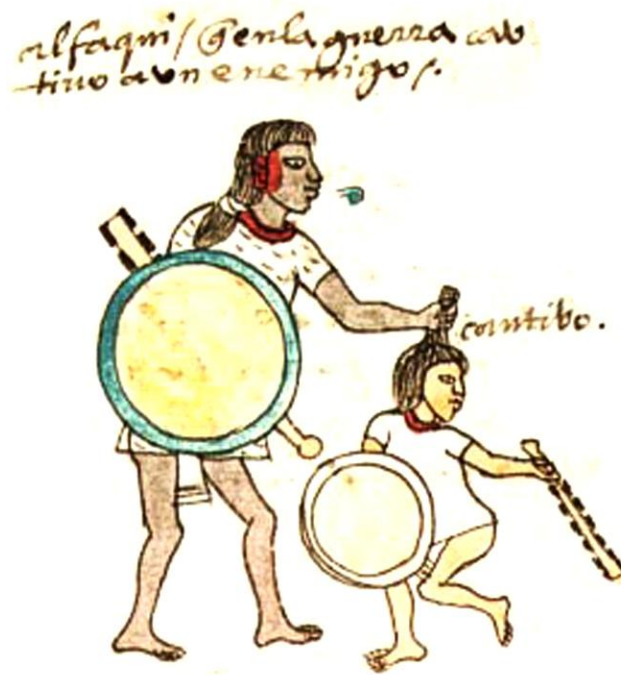 alfaqui / q̃ en la guerra cau
tivo a un enemigo /.
cautibo.